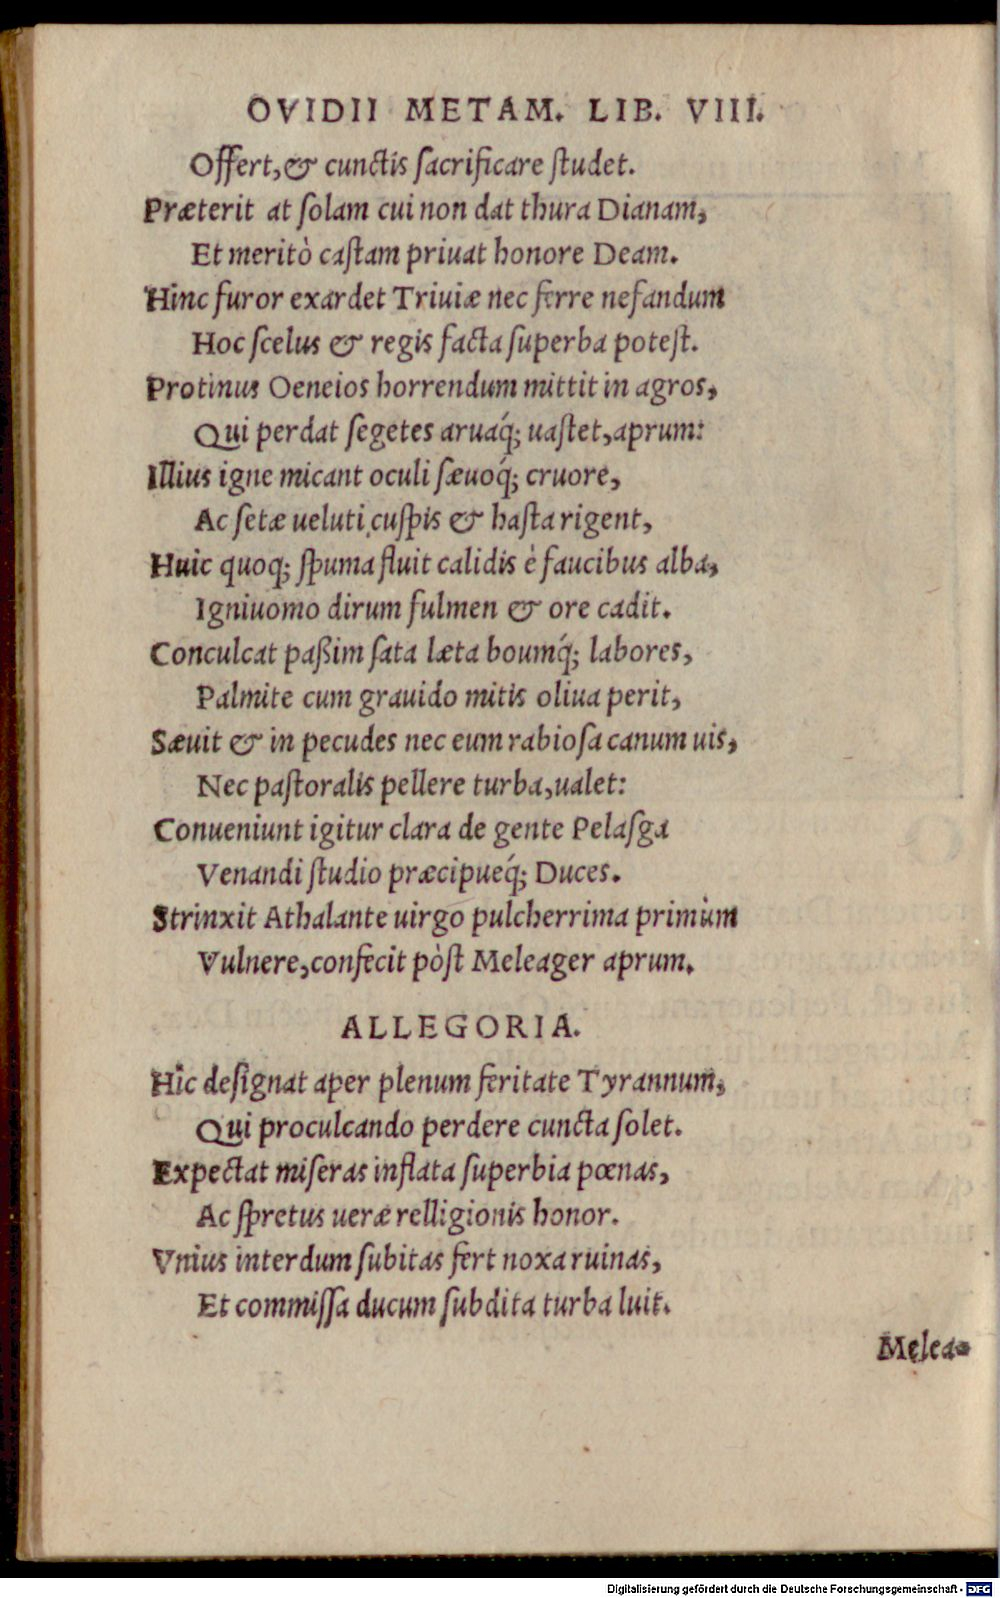 OVIDII METAM. LIB. VIII.
Offert, & cunctis ſacrificare ſtudet.
Præterit at ſolam cui non dat thura Dianam,
Et meritò caſtam priuat honore Deam.
Hinc furor exardet Triuiæ nec ferre nefandum
Hoc ſcelus & regis facta ſuperba poteſt.
Protinus Oeneios horrendum mittit in agros,
Qui perdat ſegetes aruaq́; uaſtet, aprum:
Illius igne micant oculi ſæuoq́; cruore,
Ac ſetæ ueluti cuſpis & haſta rigent,
Huic quoq; ſpuma fluit calidis è faucibus alba,
Igniuomo dirum fulmen & ore cadit.
Conculcat paßim ſata læta boumq́; labores,
Palmite cum grauido mitis oliua perit,
Sæuit & in pecudes nec eum rabioſa canum uis,
Nec paſtoralis pellere turba, ualet:
Conueniunt igitur clara de gente Pelaſga
Venandi ſtudio præcipueq́; Duces.
Strinxit Athalante uirgo pulcherrima primùm
Vulnere, confecit pòſt Meleager aprum.
ALLEGORIA.
Hic deſignat aper plenum feritate Tyrannum,
Qui proculcando perdere cuncta ſolet.
Expectat miſeras inflata ſuperbia pœnas,
Ac ſpretus ueræ relligionis honor.
Vnius interdum ſubitas fert noxa ruinas,
Et commiſſa ducum ſubdita turba luit.
Melea-
Digitalisierung gefördert durch die Deutsche Forschungsgemeinschaft - DFG